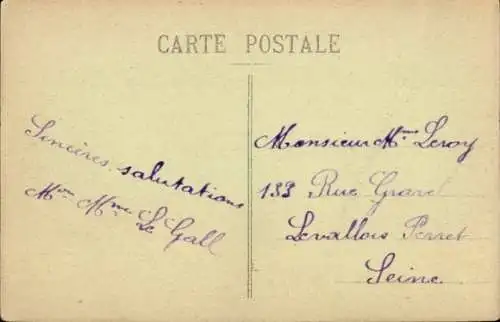 CARTE POSTALE
Sincères salutations
Mr Mme Le Gall
Monsieur Mme Leroy
133 Rue Gravel
Levallois Perret
Seine